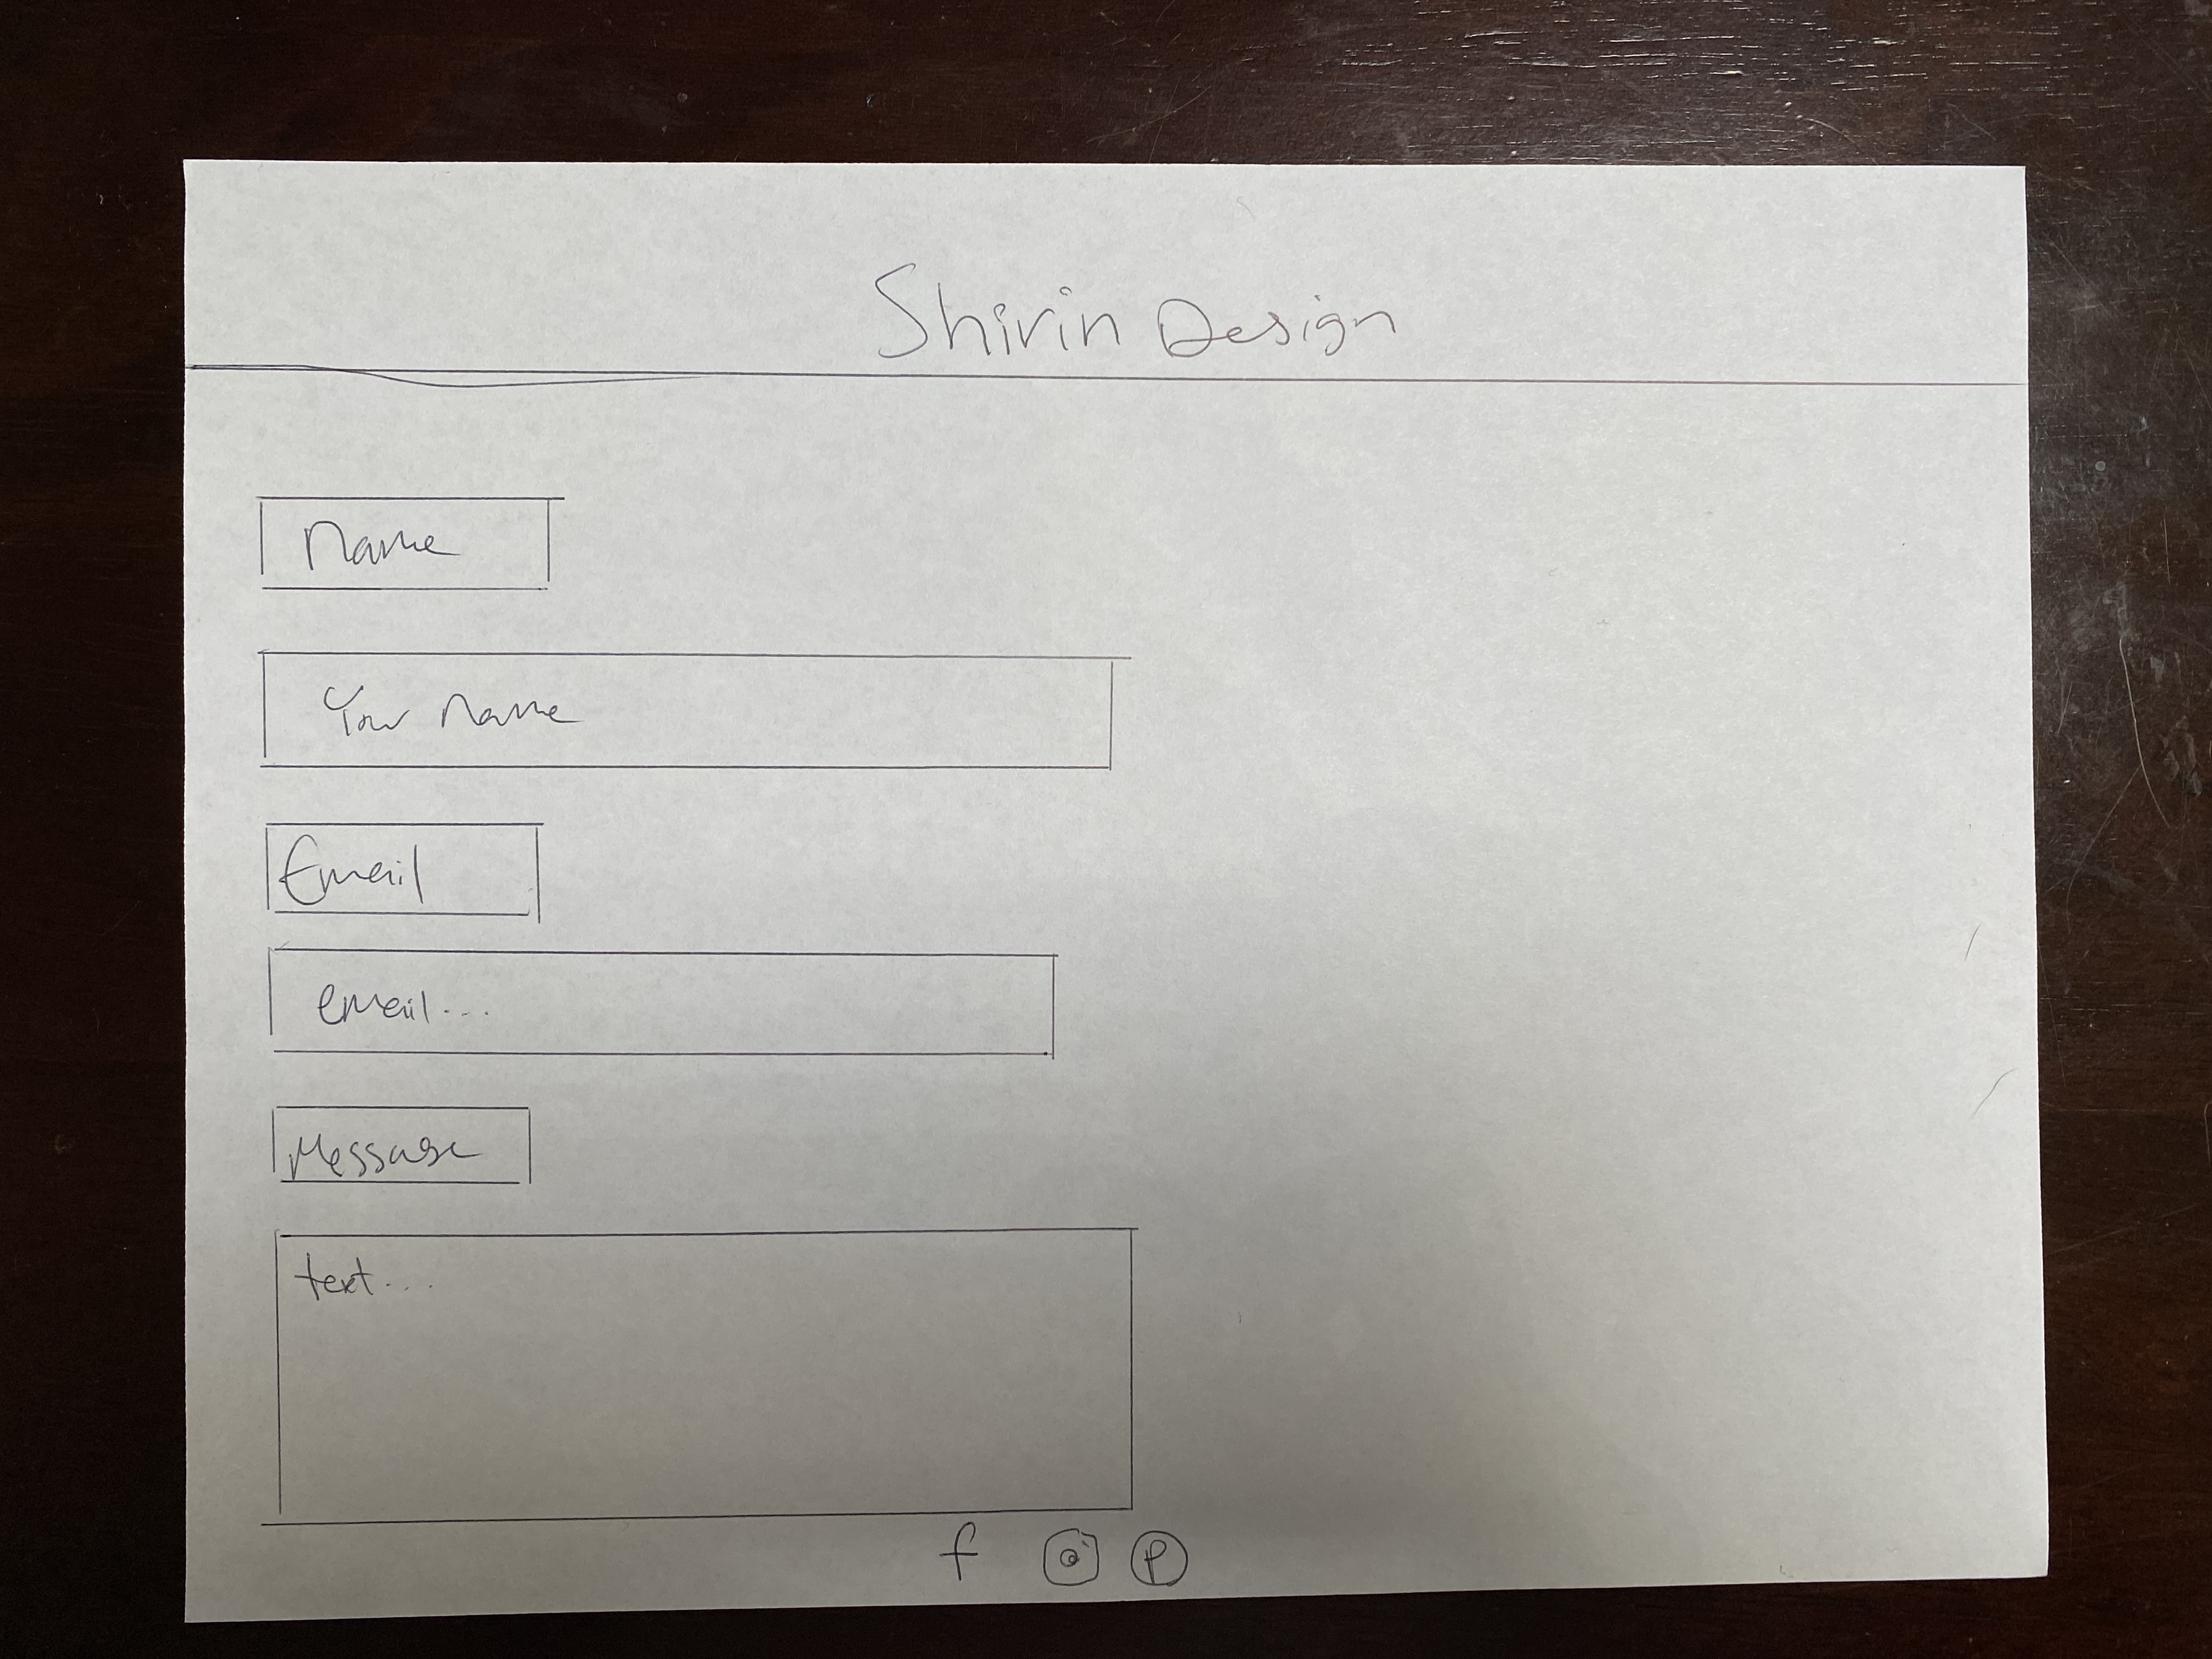 Shirin Design
Name
Your Name
Email
email...
Message
text...
f
P